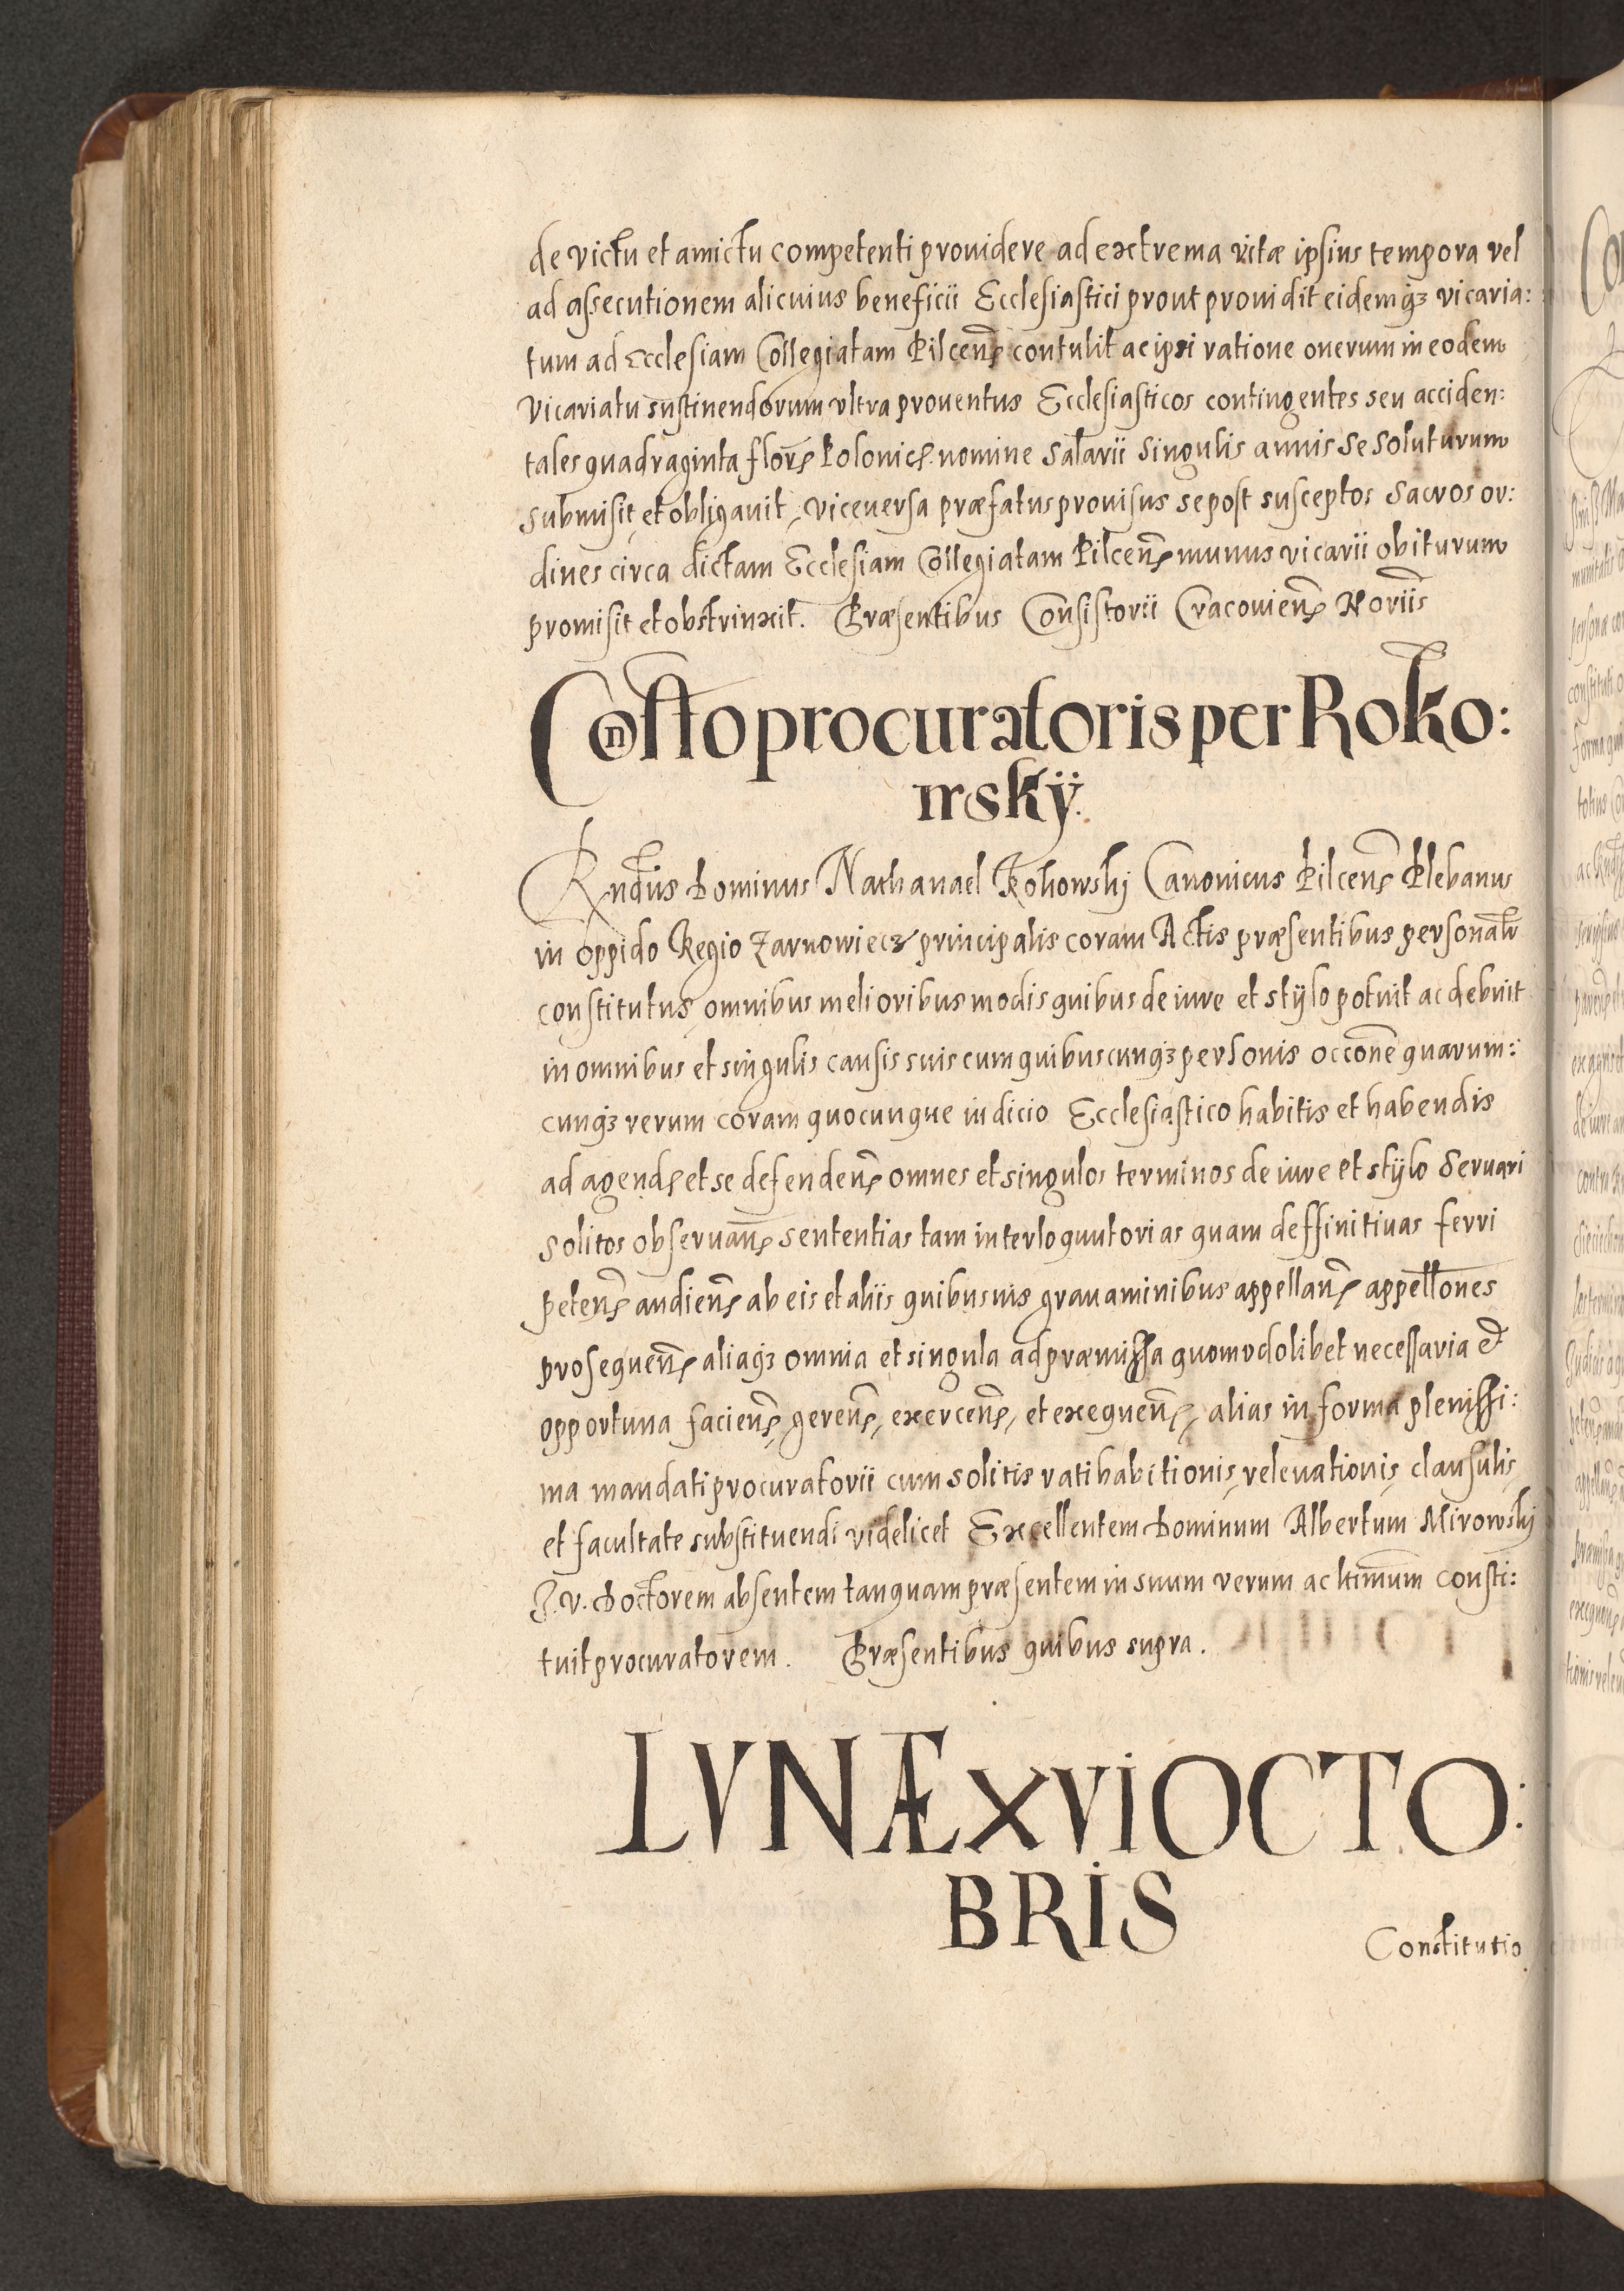 de victu et amictu competenti prouidere ad extrema vitæ ipsius tempora vel
ad assecutionem alicuius beneficii Ecclesiastici prout prouidit eidemq₃ vicaria:
tum ad Ecclesiam Collegiatam Pilcen̄ contulit ac ipsi ratione onerum in eodem
Vicariatu sustinendorum vltra prouentus Ecclesiasticos contingentes seu acciden:
tales quadraginta flor̄ Polonic nomine Salarii Singulis annis se Soluturum
submisit, et obligauit, viceuersa præfatus prouisus se post susceptos Sacros or:
dines circa dictam Ecclesiam Collegiatam Pilcen̄ munus vicarii obiturum
promisit et obstrinxit. Præsentibus Consistorii Cracouien̄ Noriis
Constto procuratoris per Roko:
wskÿ.
Rndus Dominus Nathanael Rokowskj Canonicus Pilcen̄ Plebanus
in oppido Regio Zarnowiecz principalis coram Actis præsentibus personalr
constitutus, omnibus melioribus modis quibus de iure et stÿlo potuit ac debuit
in omnibus et singulis causis suis cum quibuscunq₃ personis occone quarum:
cunq₃ rerum coram quocunque iudicio Ecclesiastico habitis et habendis
ad agend et se defenden̄ omnes et singulos terminos de iure et stÿlo Seruari
solitos obseruan̄ sententias tam interloquutorias quam deffinitiuas ferri
peten̄ audien̄ ab eis et aliis quibusuis grauaminibus appellan̄ appellones
prosequen̄ aliaq₃ omnia et singula ad præmissa quomodolibet necessaria &
opportuna facien̄, geren̄, exercen̄, et exequen̄, alias in forma plenissi:
ma mandati procuratorii cum solitis ratihabitionis, releuationis, clausulis,
et facultate substituendi videlicet Excellentem Dominum Albertum Mirowskj
J. v. Doctorem absentem tanquam præsentem in suum verum ac ltimum consti:
tuit procuratorem. Præsentibus quibus supra.
LVNÆ XVI OCTO:
BRIS
Constitutio